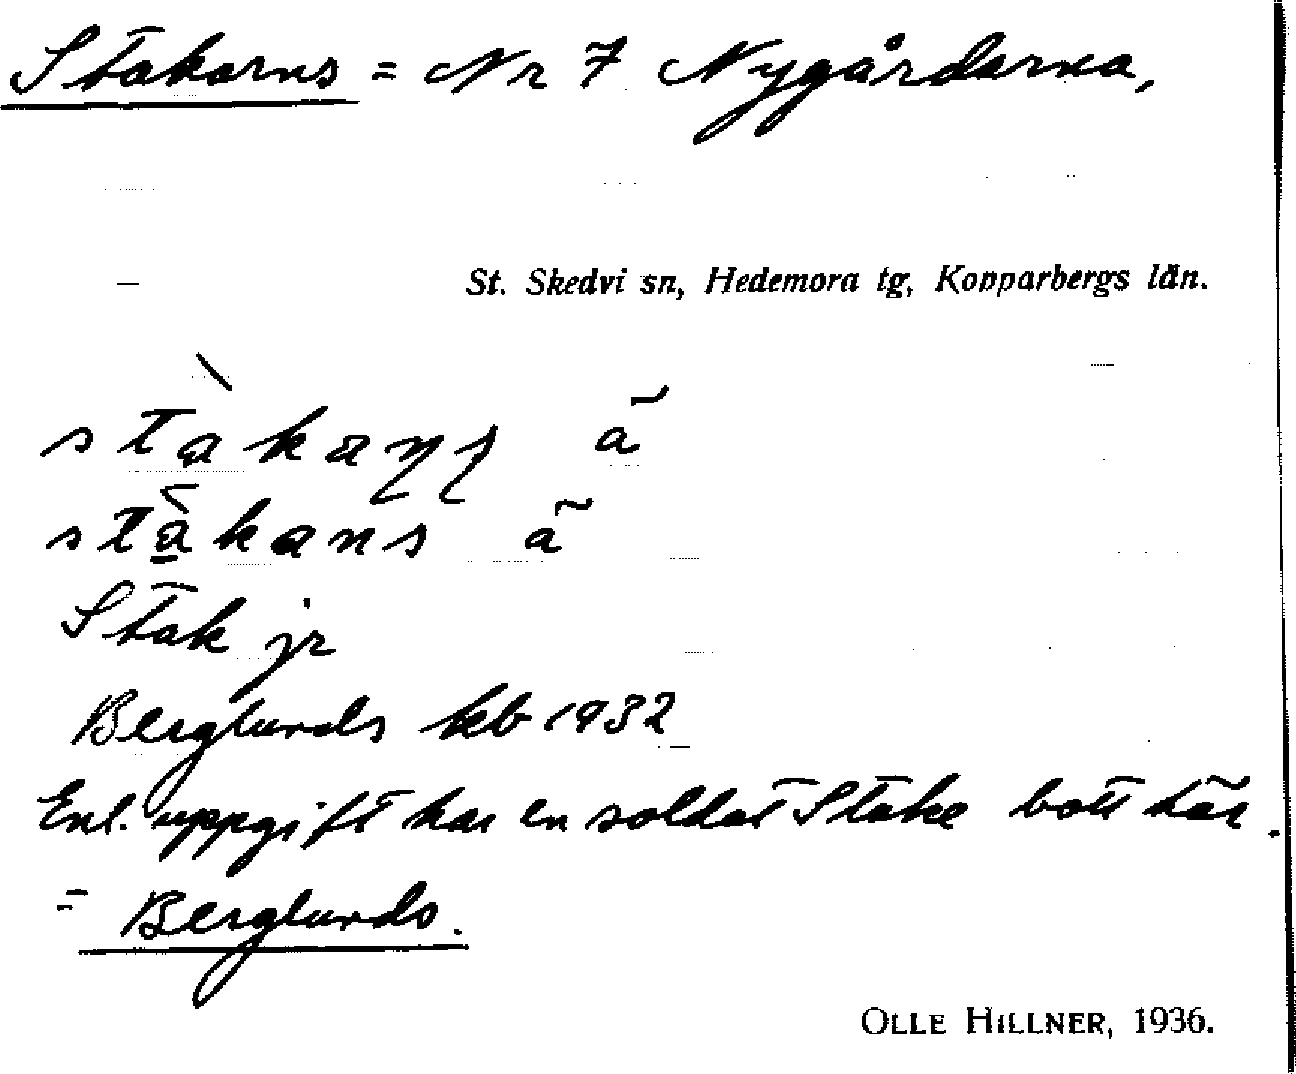 Stakarns = Nr 7 Nygårdarna,
St. Skedvi sn, Hedemora tg, Kopparbergs län.
stàkaṇṣ ã
stàkans ã
Stak jr
Berglunds kb 1932
Enl. uppgift har en soldat Stake bott där.
= Berglunds.
OLLE HILLNER, 1936.